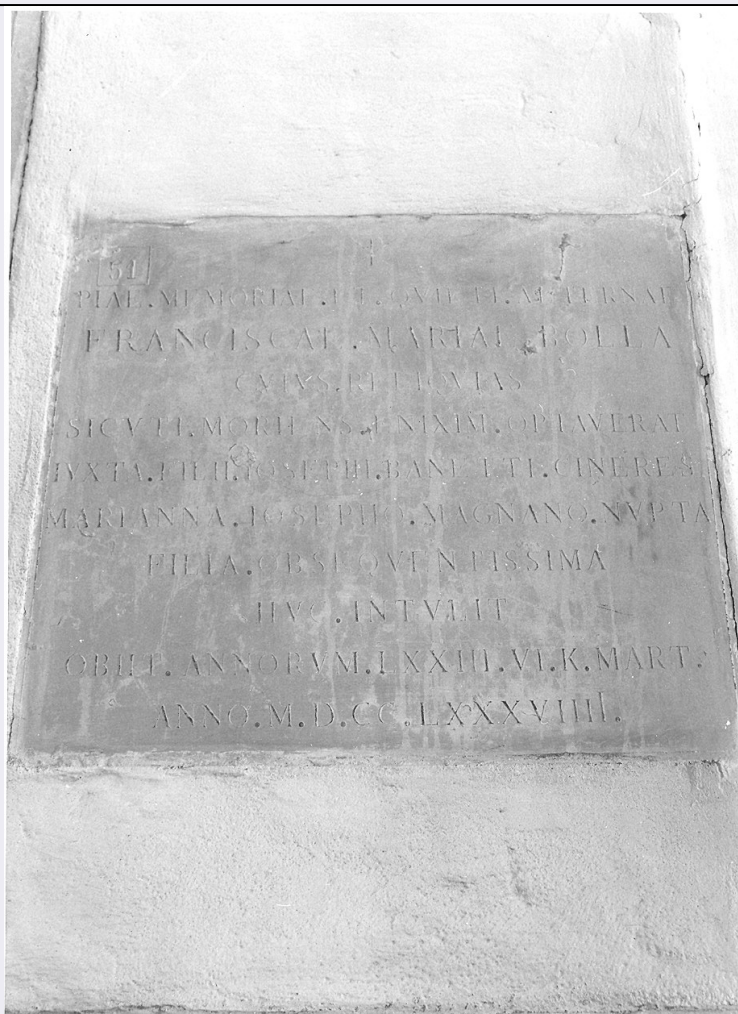 51
PIAE.MEMORIAE.ET.QVIETI.AETERNAE
FRANCISCAE.MARIAE.BOLLA
CVIVS.RELIQVIAS
SICVTI.MORIENS.ENIXIM.OPTAVERAT
IVXTA.FILII.IOSEPHI.BANFETI.CINERES
MARIANNA.IOSEPHO.MAGNANO.NVPTA
FILIA.OBSEQVENTISSIMA
HVC.INTVLIT
OBIIT.ANNORVM.LXXIII.VI.K.MART.
ANNO.M.D.CC.LXXXVIIII.